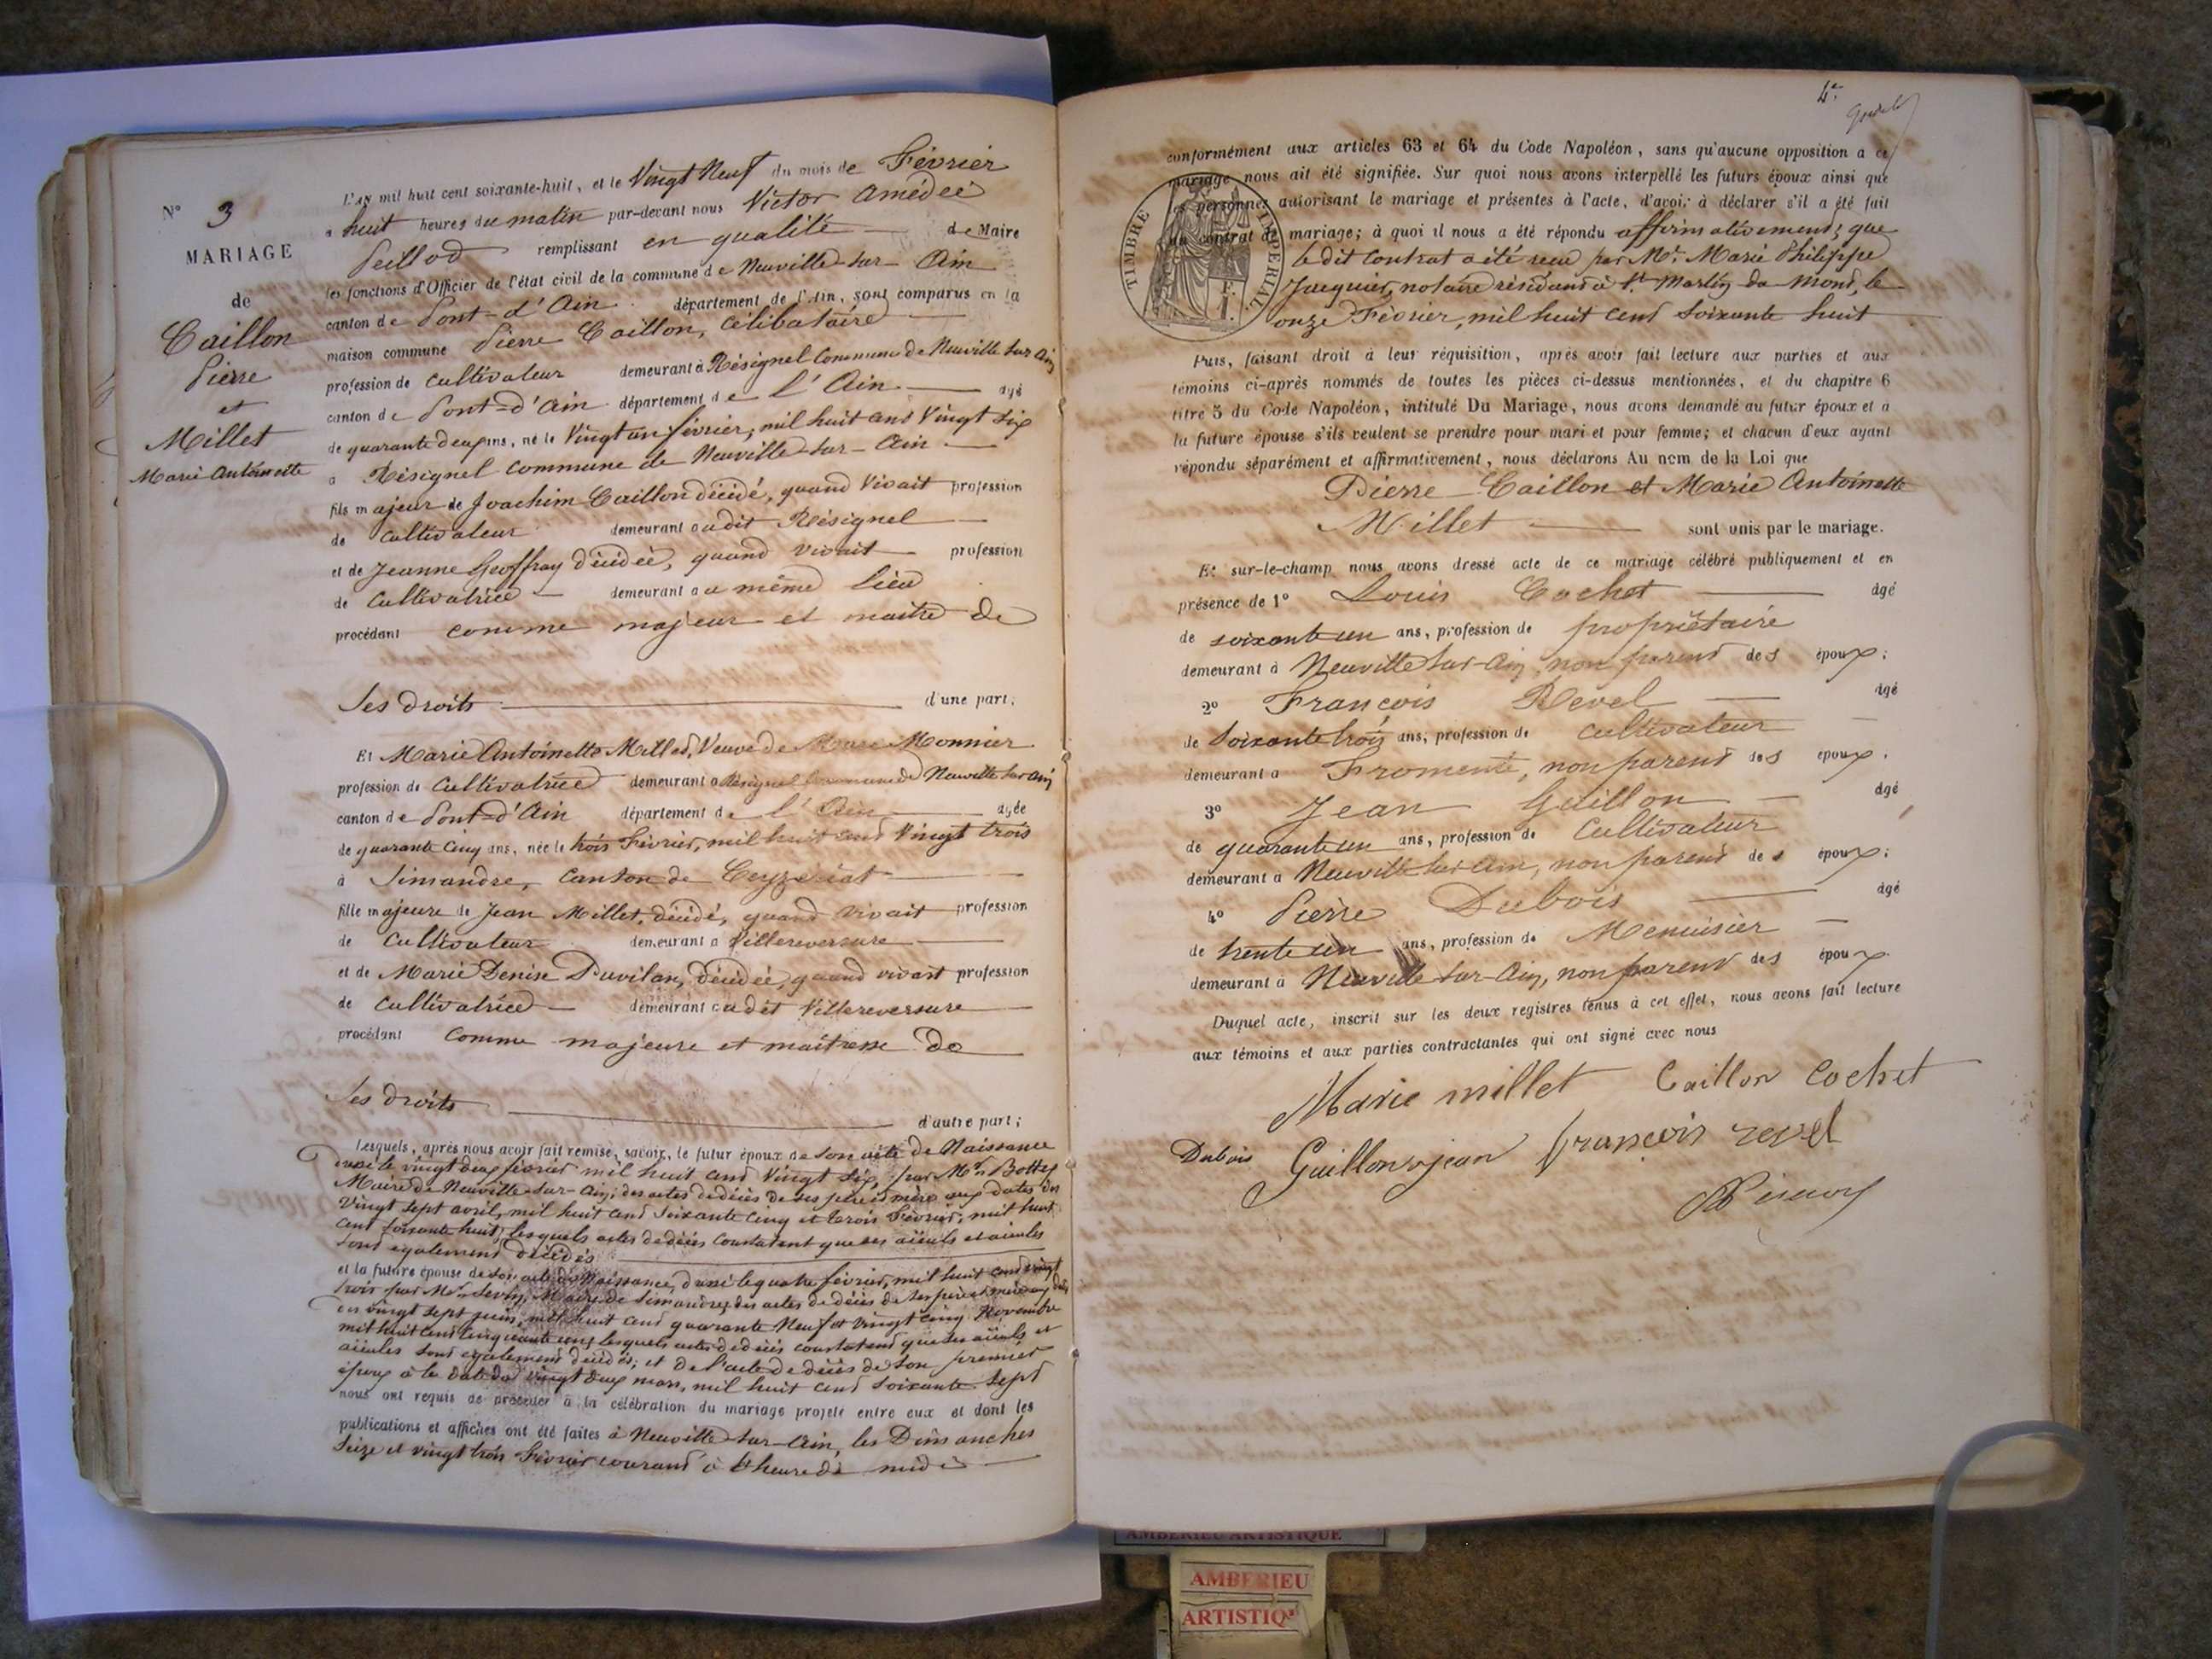 N° 3
MARIAGE
de
Caillon
Pierre
et
Millet
Marie Antoinette
L'AN mil huit cent soixante-huit, et le Vingt Neuf du mois de Février
à huit heures du matin par-devant nous Victor Amédée
Peillod remplissant en qualité de Maire
les fonctions d'Officier de l'état civil de la commune de Neuville-sur-Ain
canton de Pont-d'Ain département de l'Ain, sont comparus en la
maison commune Pierre Caillon, célibataire
profession de cultivateur demeurant à Résignel Commune de Neuville sur Ain
canton de Pont-d'Ain département de L'Ain âgé
de quarante deux ans, né le Vingt un février, mil huit cent Vingt Six
à Résignel commune de Neuville-sur-Ain
fils majeur de Joachim Caillon décédé, quand Vivait profession
de Cultivateur demeurant audit Résignel
et de Jeanne Geoffray décédée, quand vivait profession
de Cultivatrice demeurant au même lieu
procédant comme majeur et maître de
Ses droits d'une part;
Et Marie Antoinette Millet, Veuve de Monnier
profession de Cultivatrice demeurant à Résignel Commune de Neuville sur Ain
canton de Pont-d'Ain département de l'Ain âgée
de quarante Cinq ans, née le trois Février, mil huit cent Vingt trois
à Simandre, Canton de Ceyzériat
fille majeure de Jean Millet, décédé, quand vivait profession
de Cultivateur demeurant à Villereversure
et de Marie Denise Duvilan, décédée, quand vivait profession
de Cultivatrice demeurant audit Villereversure
procédant Comme majeure et maîtresse de
Ses droits d'autre part;
Lesquels, après nous avoir fait remise, savoir, le futur époux de Son acte de Naissance
dressé le vingt deux février mil huit cent Vingt Six, par Mr
Maire de Neuville-sur-Ain; des actes de décès de ses père et mère aux dates des
Vingt sept avril, mil huit cent Soixante Cinq et trois Février, mil huit
cent soixante huit, lesquels actes de décès Constatent que ses aïeuls et aïeules
Sont également décédés
et la future épouse de Son acte de Naissance, dressé le quatre février, mil huit cent vingt
trois par Mr Maire de Simandre, des actes de décès de Ses père et mère aux dates
des vingt sept juin, mil huit cent quarante Neuf et Vingt Cinq Novembre
mil huit cent Cinquante lesquels actes de décès constatent que ses aïeuls et
aïeules Sont également décédés; et de l'acte de décès de Son premier
époux à la date du vingt deux mars, mil huit cent Soixante Sept
nous ont requis de procéder à la célébration du mariage projeté entre eux et dont les
publications et affiches ont été faites à Neuville-sur-Ain, les Dimanches
Seize et vingt trois Février courant à l'heure de midi
4e
conformément aux articles 63 et 64 du Code Napoléon, sans qu'aucune opposition a ce
mariage nous ait été signifiée. Sur quoi nous avons interpellé les futurs époux ainsi que
les personnes autorisant le mariage et présentes à l'acte, d'avoir à déclarer s'il a été fait
un contrat de mariage; à quoi il nous a été répondu affirmativement; que
le dit Contrat a été reçu par Me Marie Philippe
Jacquier, notaire résidant à St Martin du Mont, le
onze Février, mil huit cent soixante huit
TIMBRE IMPERIAL
Puis, faisant droit à leur réquisition, après avoir fait lecture aux parties et aux
témoins ci-après nommés de toutes les pièces ci-dessus mentionnées, et du chapitre 6
titre 5 du Code Napoléon, intitulé Du Mariage, nous avons demandé au futur époux et a
la future épouse s'ils veulent se prendre pour mari et pour femme; et chacun d'eux ayant
répondu séparément et affirmativement, nous déclarons Au nom de la Loi que
Pierre Caillon et Marie Antoinette
Millet sont unis par le mariage.
Et sur-le-champ nous avons dressé acte de ce mariage célébré publiquement et en
présence de 1° Louis Cochet âgé
de soixante un ans, profession de propriétaire
demeurant à Neuville sur-Ain, non parent des époux;
2° François Revel âgé
de Soixante trois ans, profession de cultivateur
demeurant a Fromente, non parent des époux.
3° Jean Guillon âgé
de quarante un ans, profession de Cultivateur
demeurant a Neuville sur Ain, non parent des époux;
4° Pierre Dubois âgé
de trente un ans, profession de Menuisier
demeurant à Neuville sur-Ain, non parent des époux
Duquel acte, inscrit sur les deux registres tenus à cet effet, nous avons fait lecture
aux témoins et aux parties contractantes qui ont signé avec nous
Marie millet Caillon Cochet
Dubois Guillon jean françois revel
AMBERIEU ARTISTIQUE
AMBERIEU
ARTISTIQe